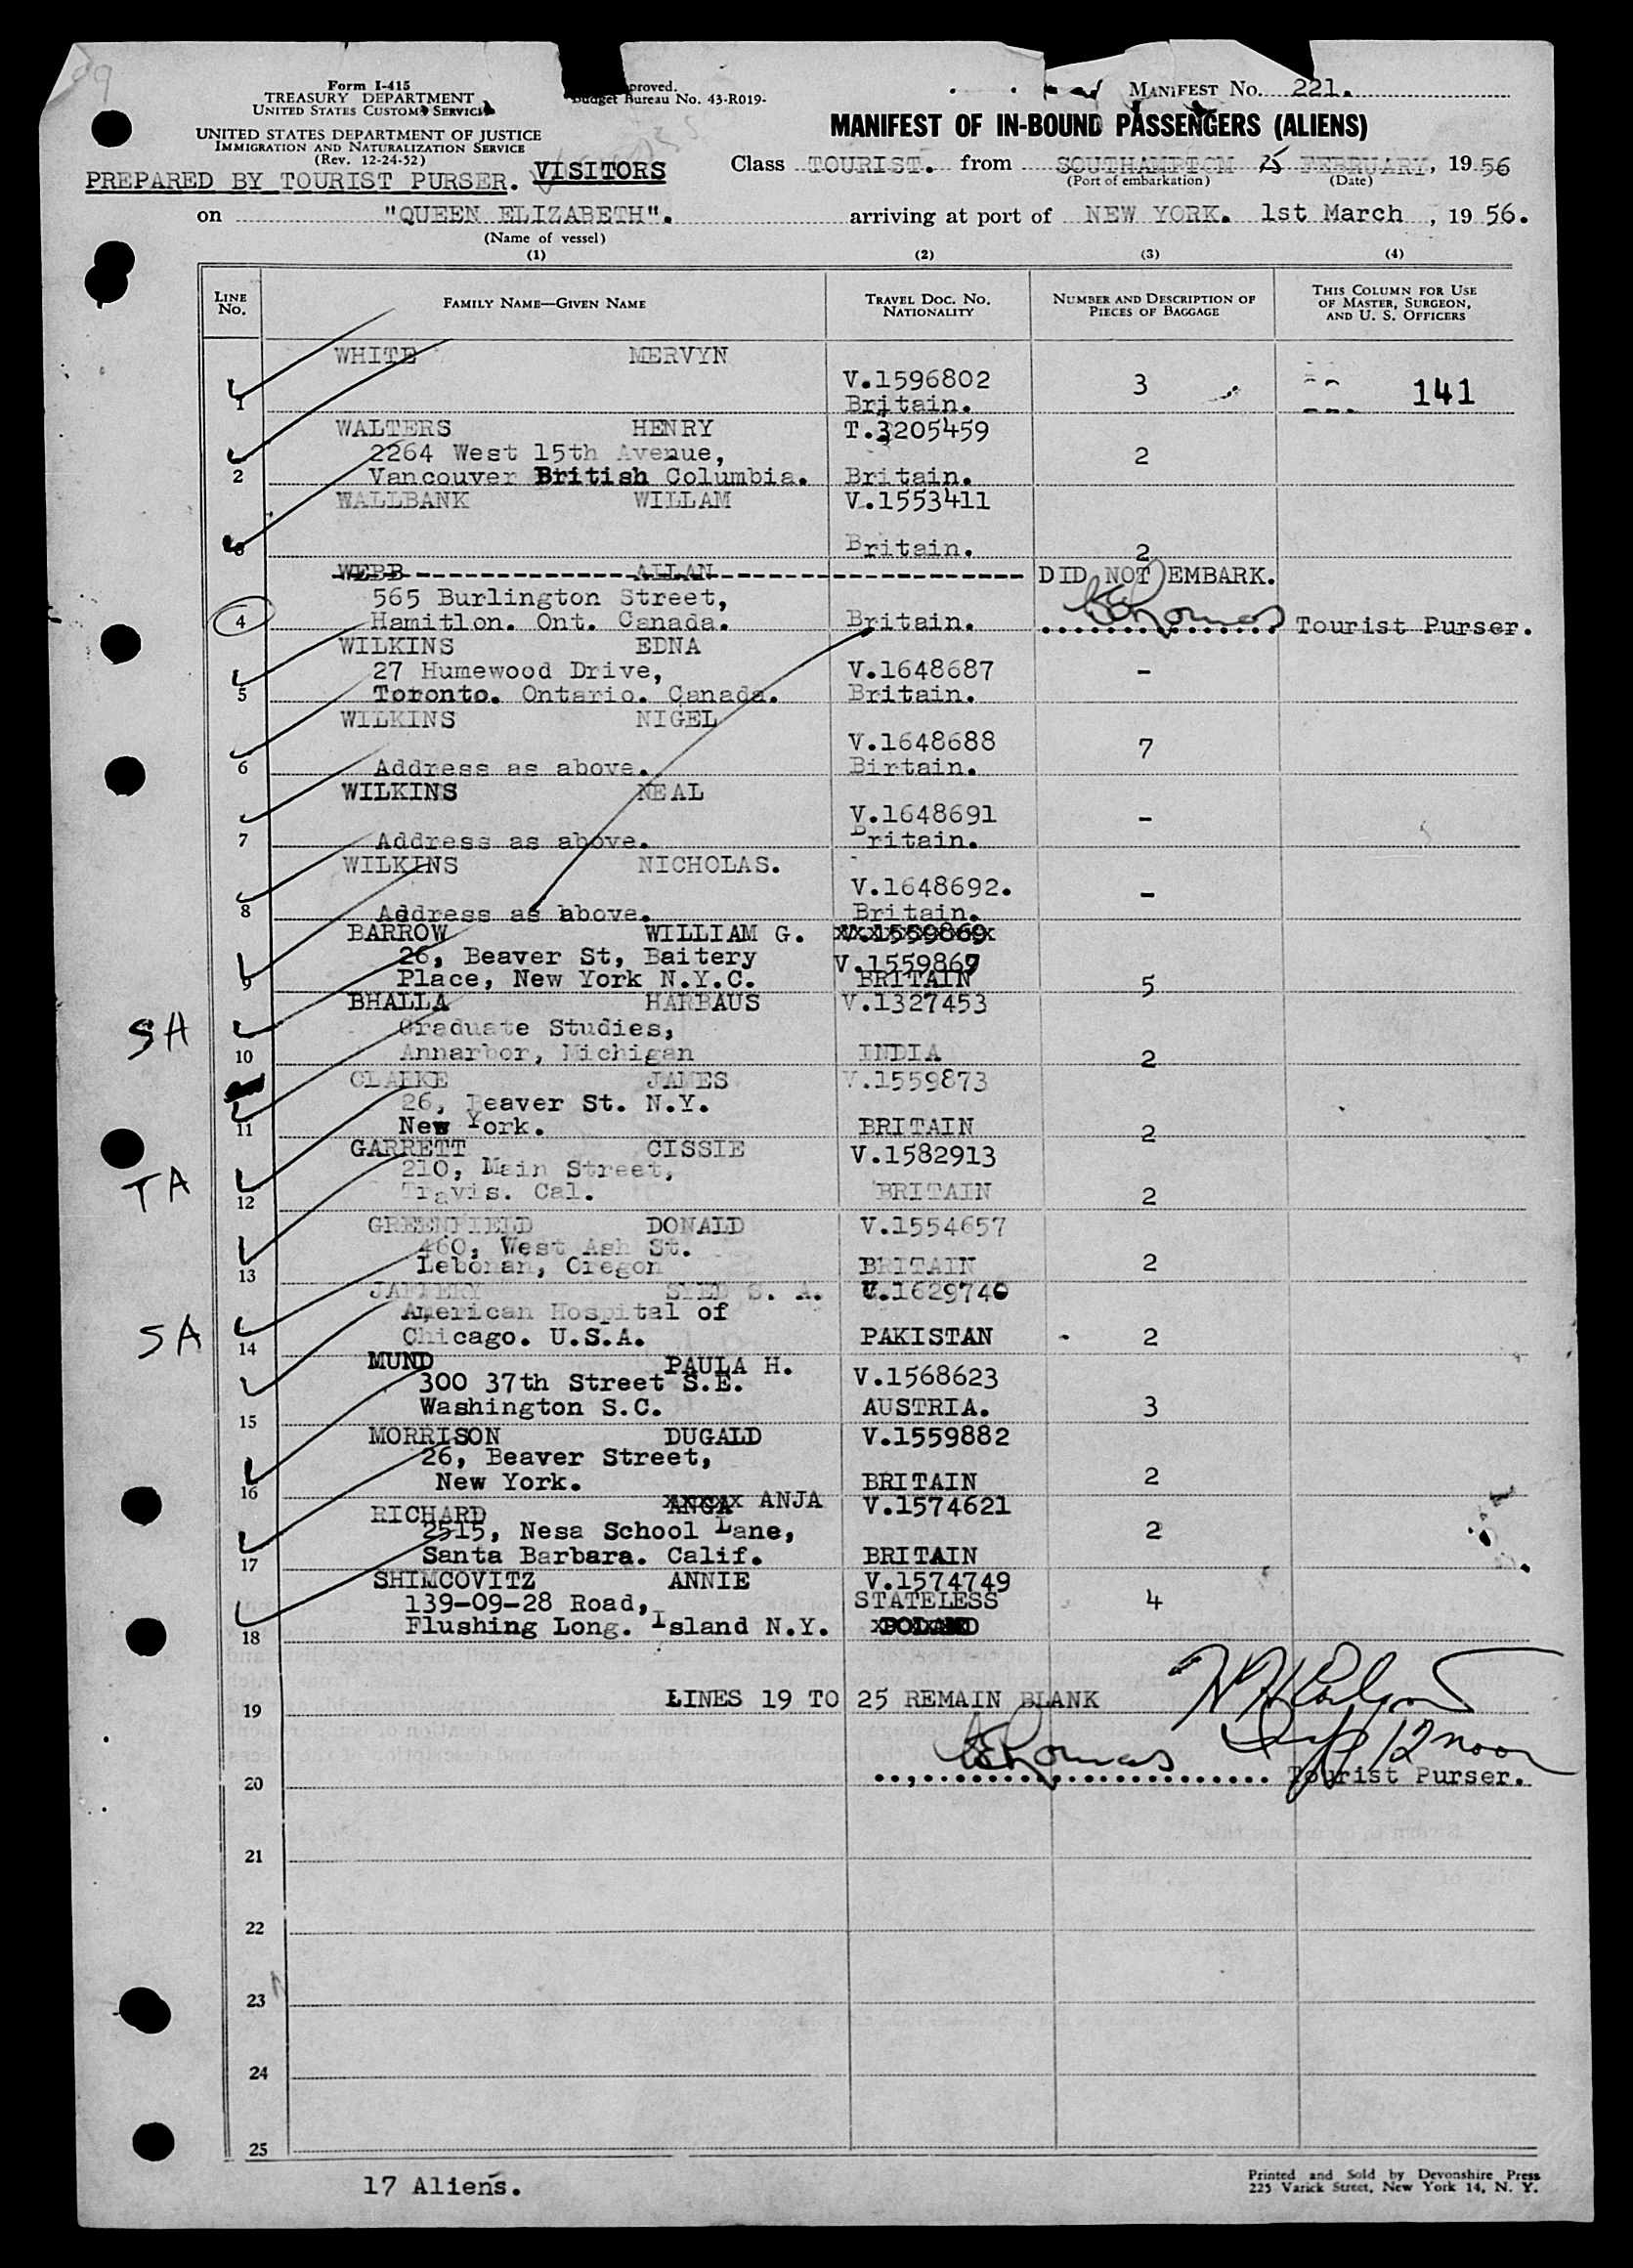 Form I-415
TREASURY DEPARTMENT
UNITED STATES CUSTOMS SERVICE
UNITED STATES DEPARTMENT OF JUSTICE
IMMIGRATION AND NATURALIZATION SERVICE
(Rev. 12-24-52)
PREPARED BY TOURIST PURSER. VISITORS
proved.
Budget Bureau No. 43-R019-
MANIFEST No. 221.
MANIFEST OF IN-BOUND PASSENGERS (ALIENS)
Class TOURIST. from SOUTHAMPTON 25 FEBRUARY, 1956
(Port of embarkation) (Date)
on "QUEEN ELIZABETH". arriving at port of NEW YORK. 1st March, 1956.
(Name of vessel)
(1) (2) (3) (4)
LINE No. FAMILY NAME—GIVEN NAME TRAVEL DOC. No. NATIONALITY NUMBER AND DESCRIPTION OF PIECES OF BAGGAGE THIS COLUMN FOR USE OF MASTER, SURGEON, AND U. S. OFFICERS
WHITE MERVYN
V.1596802 3 141
1 Britain.
WALTERS HENRY T.3205459
2264 West 15th Avenue, 2
2 Vancouver British Columbia. Britain.
WALLBANK WILLAM V.1553411
3 Britain. 2
WEBB AILAN DID NOT EMBARK.
565 Burlington Street,
4 Hamitlon. Ont. Canada. Britain. Tourist Purser.
WILKINS EDNA
27 Humewood Drive, V.1648687 -
5 Toronto. Ontario. Canada. Britain.
WILKINS NIGEL
V.1648688 7
6 Address as above. Birtain.
WILKINS NEAL
V.1648691 -
7 Address as above. Britain.
WILKINS NICHOLAS.
V.1648692. -
8 Address as above. Britain.
BARROW WILLIAM G. V.1559869
26, Beaver St, Baitery V.1559867
9 Place, New York N.Y.C. BRITAIN 5
BHALLA HARBAUS V.1327453
SH Graduate Studies,
10 Annarbor, Michigan INDIA 2
CLARKE JAMES V.1559873
26, Beaver St. N.Y.
11 New York. BRITAIN 2
GARRETT CISSIE V.1582913
TA 210, Main Street,
12 Travis. Cal. BRITAIN 2
GREENFIELD DONALD V.1554657
460, West Ash St.
13 Lebonan, Oregon BRITAIN 2
JAFFERY SYED S. A. V.1629740
American Hospital of
SA 14 Chicago. U.S.A. PAKISTAN - 2
MUND PAULA H.
300 37th Street S.E. V.1568623
15 Washington S.C. AUSTRIA. 3
MORRISON DUGALD V.1559882
26, Beaver Street,
16 New York. BRITAIN 2
RICHARD ANGA ANJA V.1574621
2515, Nesa School Lane, 2
17 Santa Barbara. Calif. BRITAIN
SHIMCOVITZ ANNIE V.1574749
139-09-28 Road, STATELESS 4
18 Flushing Long. Island N.Y. POLAND
19 LINES 19 TO 25 REMAIN BLANK
12 noon
20 Tourist Purser.
21
22
23
24
25
17 Aliens.
Printed and Sold by Devonshire Press
225 Varick Street, New York 14, N. Y.